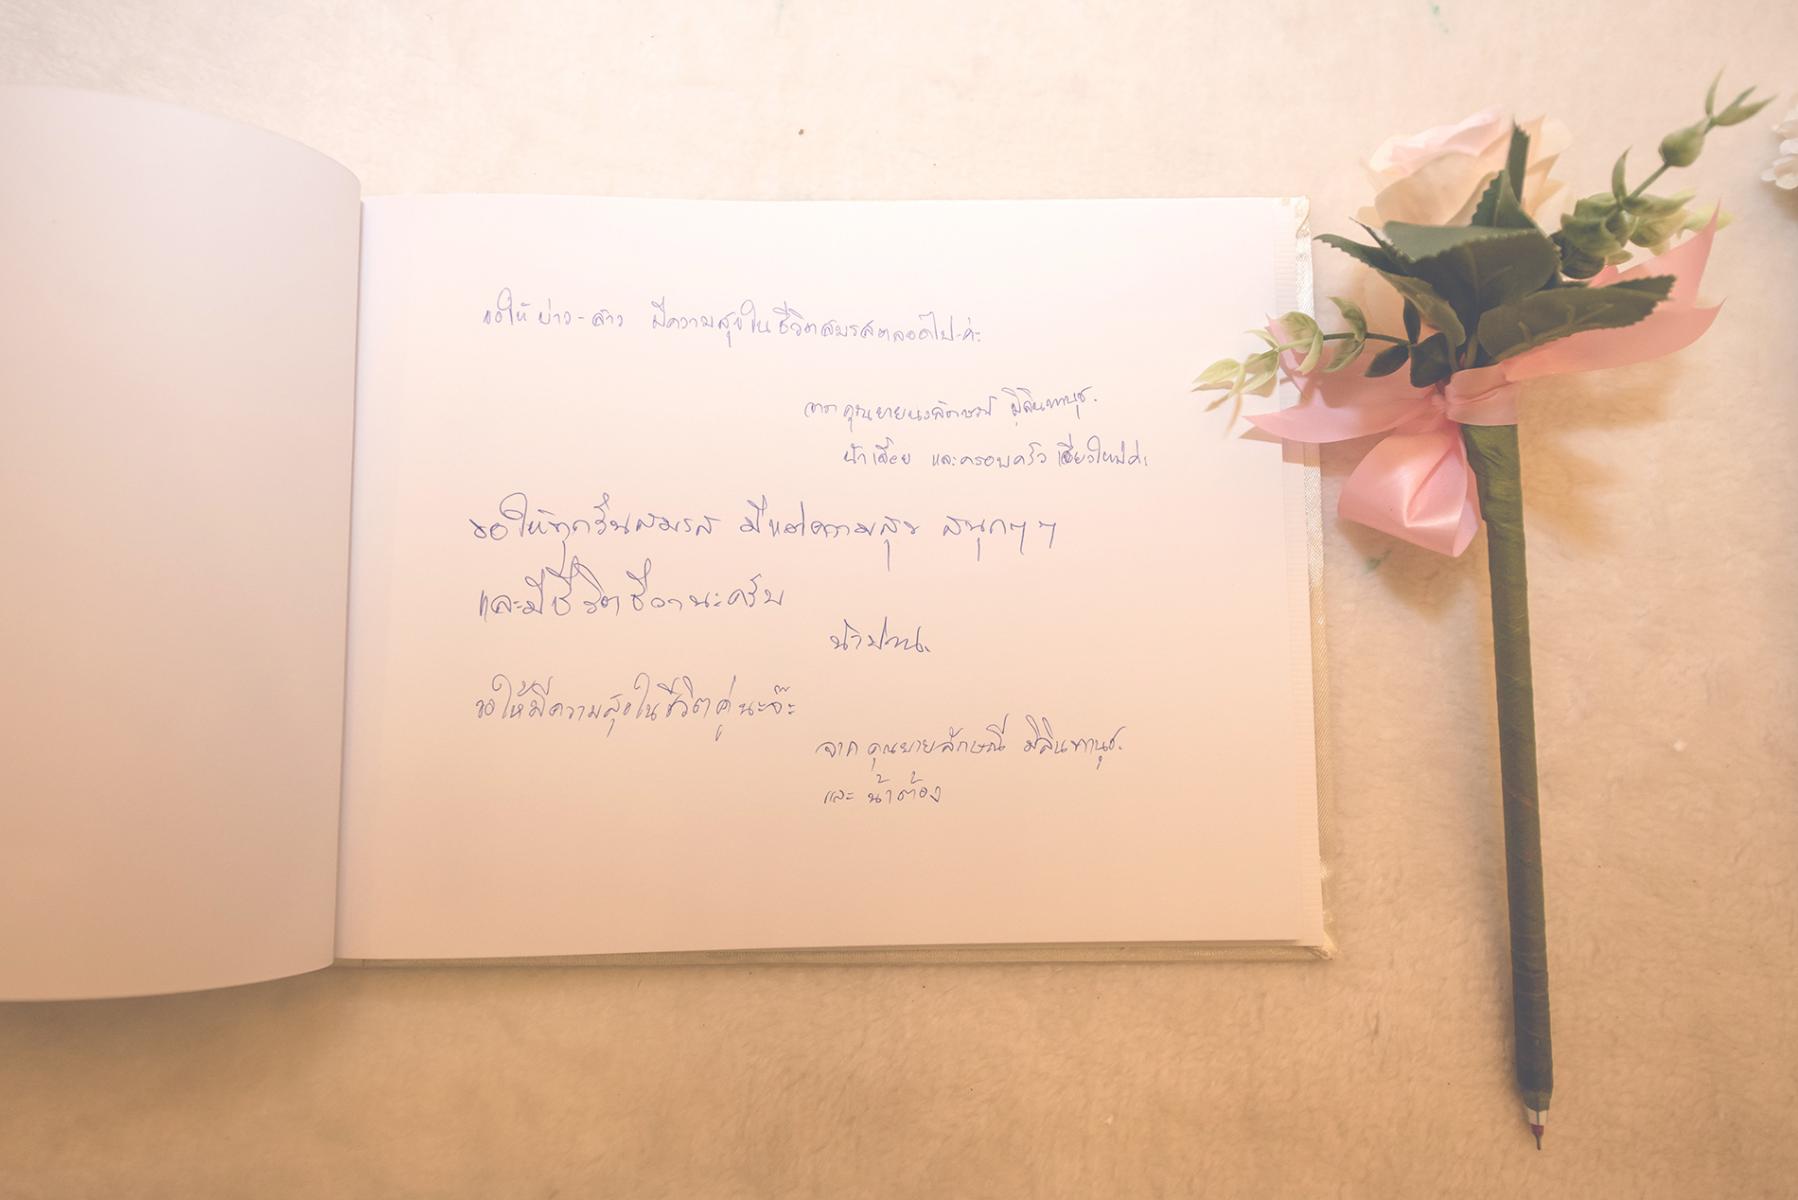 ขอให้ บ่าว-สาว มีความสุขในชีวิตสมรสตลอดไปค่ะ
จาก คุณยายนงลักษณ์ มิลินทานุช.
และครอบครัว เชียงใหม่ค่ะ
ขอให้ทุกวันสมรส มีแต่ความสุข สนุกๆๆ
และมีชีวิตชีวานะครับ
ขอให้มีความสุขในชีวิตคู่นะจ๊ะ
จาก คุณยายลักษณี มิลินทานุช.
และ น้าต้อง